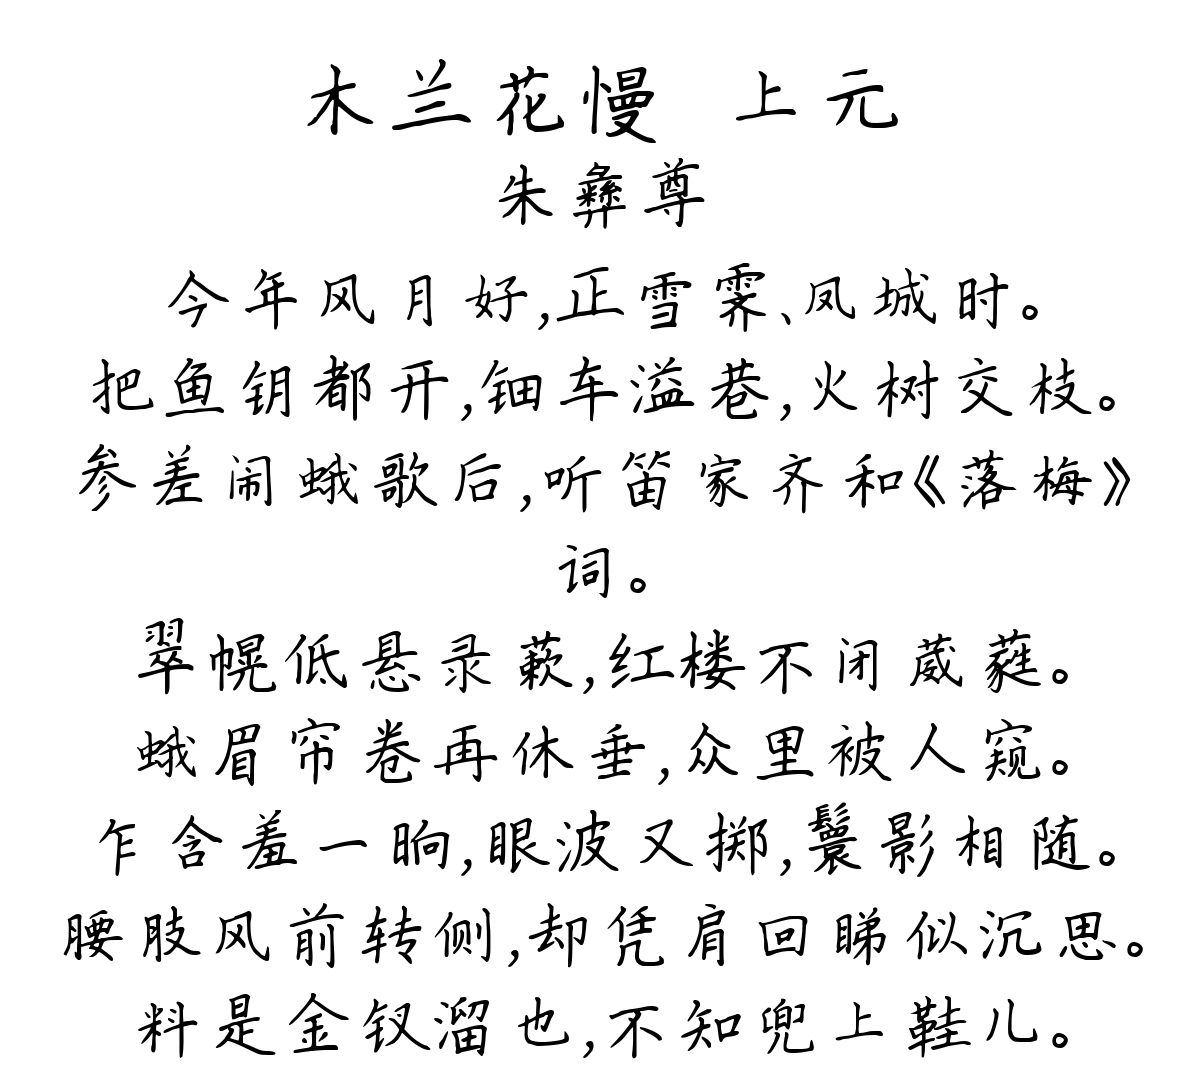 木兰花慢 上元
朱彝尊
今年风月好,正雪霁、凤城时。
把鱼钥都开,钿车溢巷,火树交枝。
参差闹蛾歌后,听笛家齐和《落梅》
词。
翠幌低悬录蔌,红楼不闭葳蕤。
蛾眉帘卷再休垂,众里被人窥。
乍含羞一晌,眼波又掷,鬟影相随。
腰肢风前转侧,却凭肩回睇似沉思。
料是金钗溜也,不知兜上鞋儿。